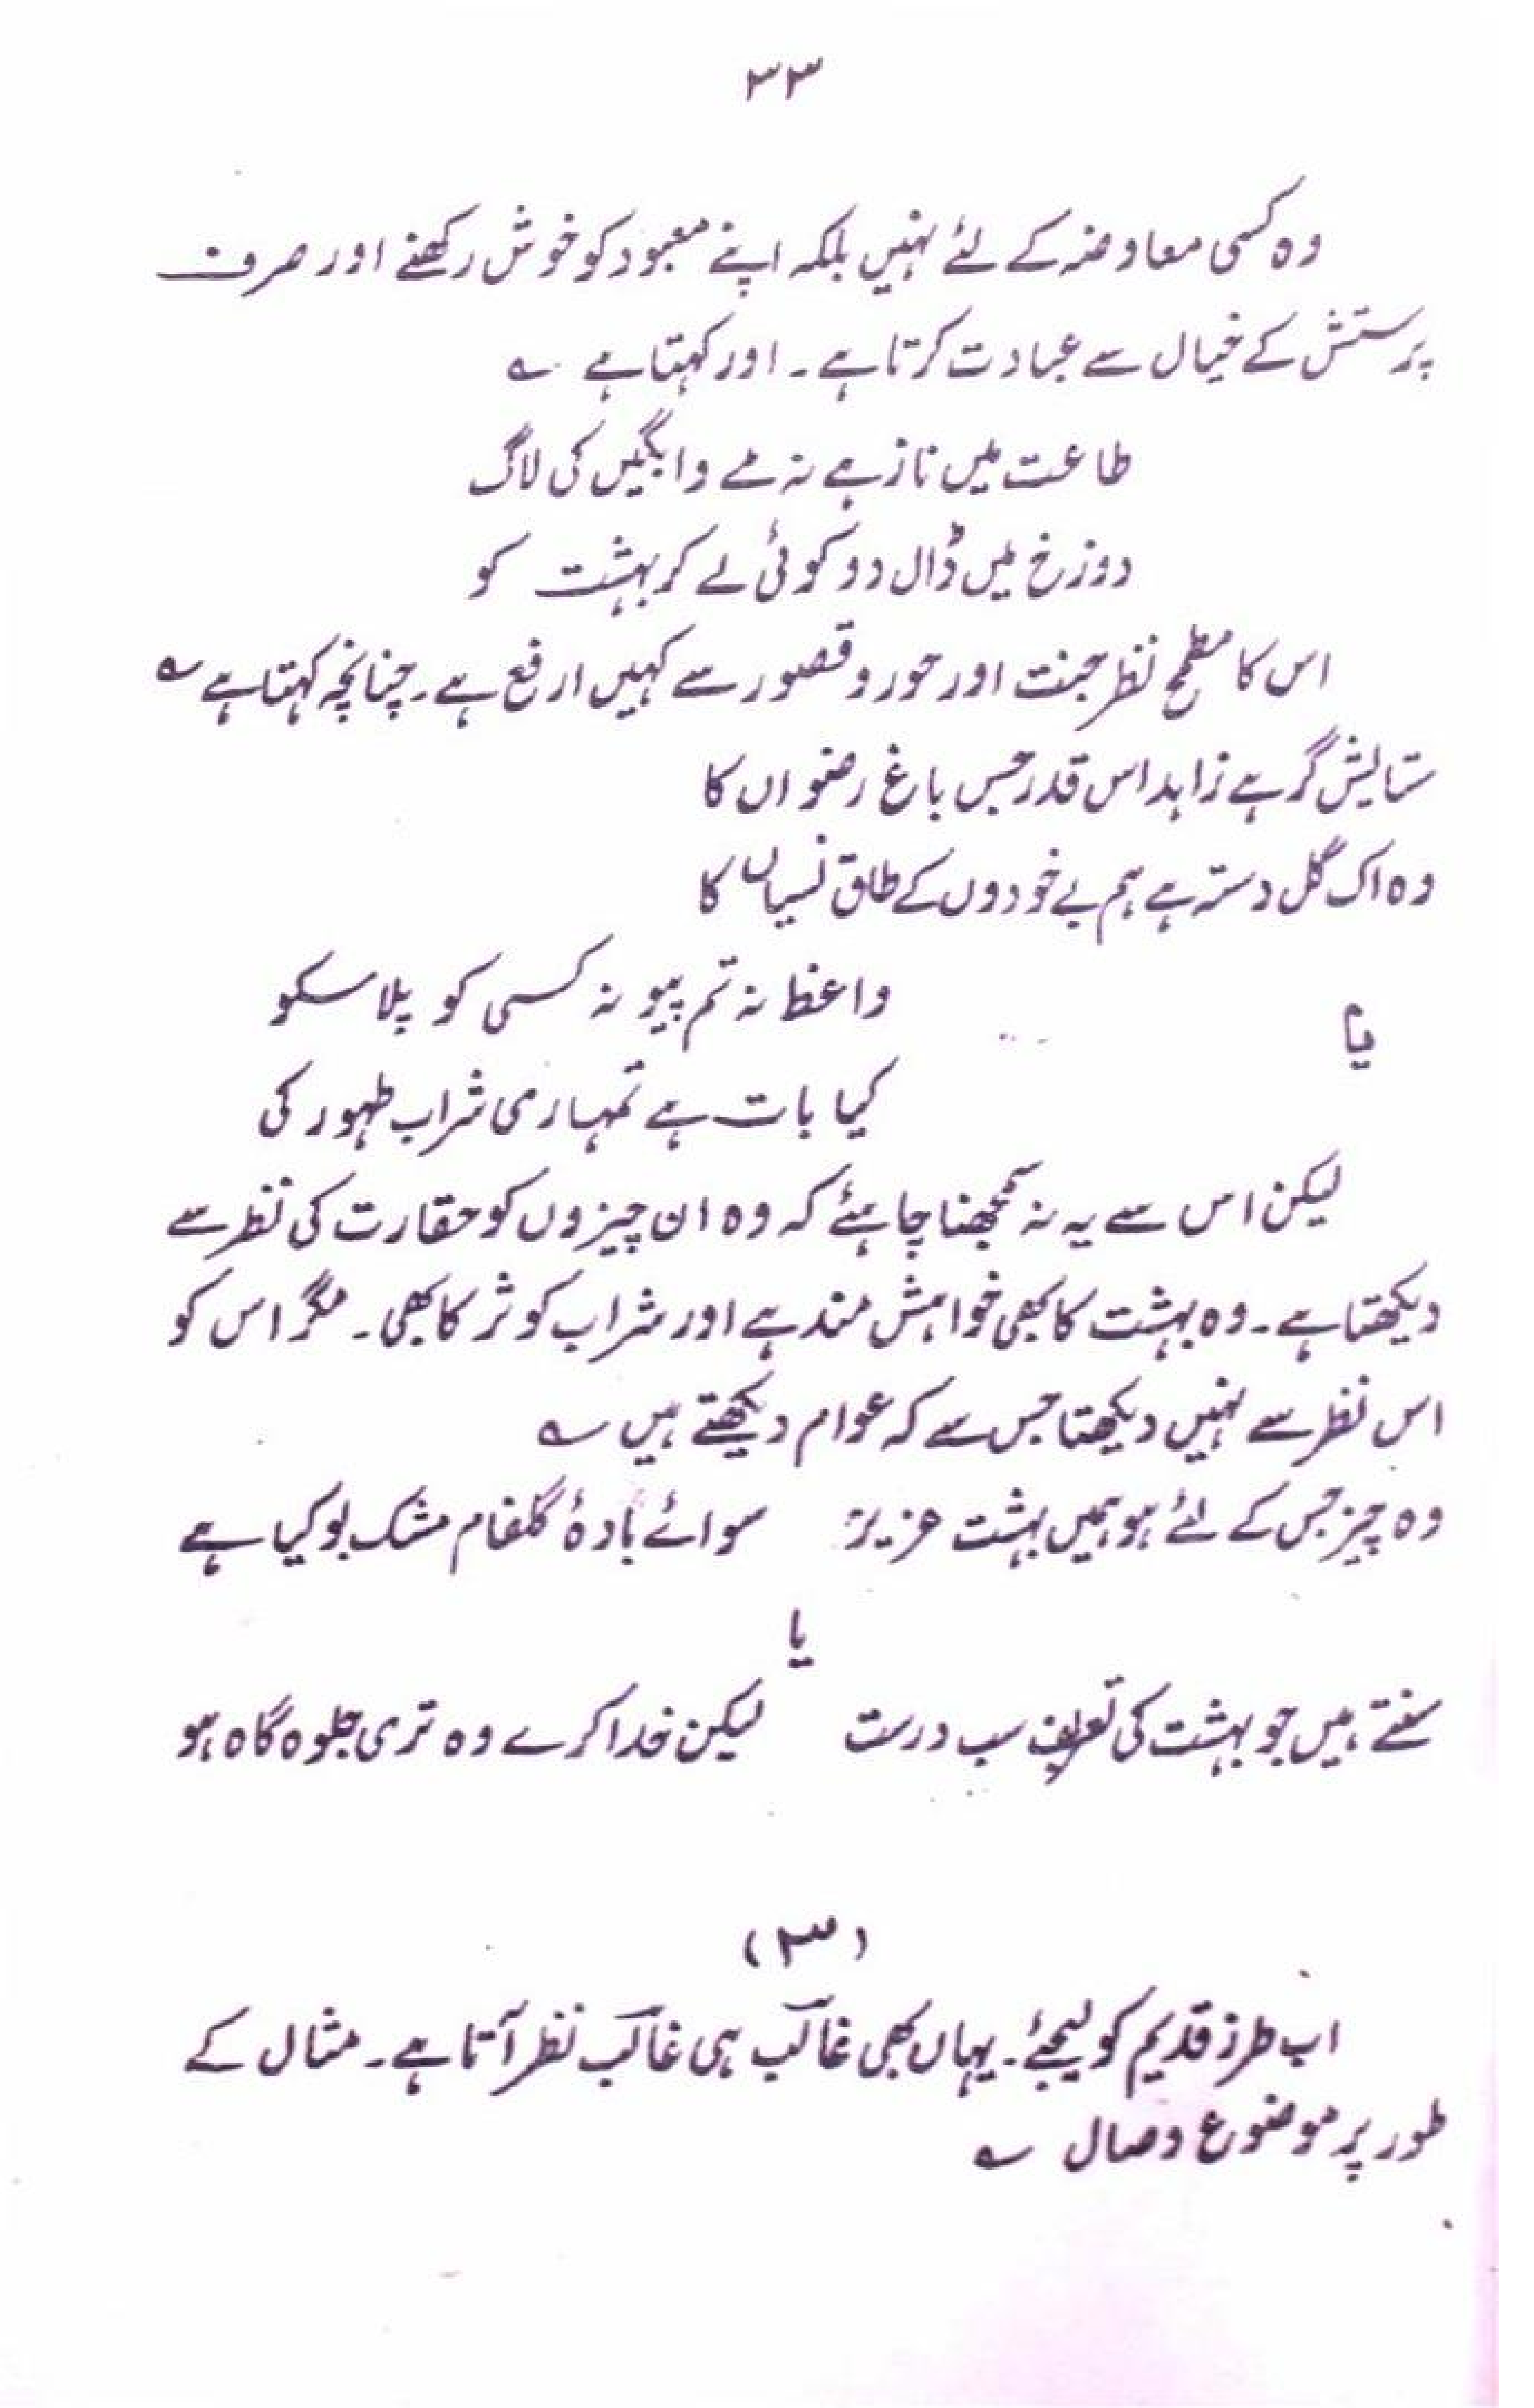 ۳۳
وہ کسی معاوضہ کے لئے نہیں بلکہ اپنے معبود کو خوش رکھنے اور صرف
پرستش کے خیال سے عبادت کرتا ہے۔ اور کہتا ہے ؎
طاعت میں تا زہے نہ مے وانگبیں کی لاگ
دوزخ میں ڈال دو کوئی لے کر بہشت کو
اس کا مطمح نظر جنت اور حور و قصور سے کہیں ارفع ہے۔ چنانچہ کہتا ہے ؎
ستایش گر ہے زاہد اس قدر جس باغ رضواں کا
وہ اک گل دستہ ہے ہم بے خودوں کے طاق نسیاں کا
یا
واعظ نہ تم پیو نہ کسی کو پلا سکو
کیا بات ہے تمہاری شراب طہور کی
لیکن اس سے یہ نہ سمجھنا چاہئے کہ وہ ان چیزوں کو حقارت کی نظر سے
دیکھتا ہے۔ وہ بہشت کا بھی خواہش مند ہے اور شراب کوثر کا بھی۔ مگر اس کو
اس نظر سے نہیں دیکھتا جس سے کہ عوام دیکھتے ہیں ؎
وہ چیز جس کے لئے ہو ہمیں بہشت عزیز سوائے بادۂ گلفام مشک بو کیا ہے
یا
سنتے ہیں جو بہشت کی تعریف سب درست لیکن خدا کرے وہ تری جلوہ گاہ ہو
(۳)
اب طرز قدیم کو لیجئے۔ یہاں بھی غالب ہی غالب نظر آتا ہے۔ مثال کے
طور پر موضوع وصال ؎